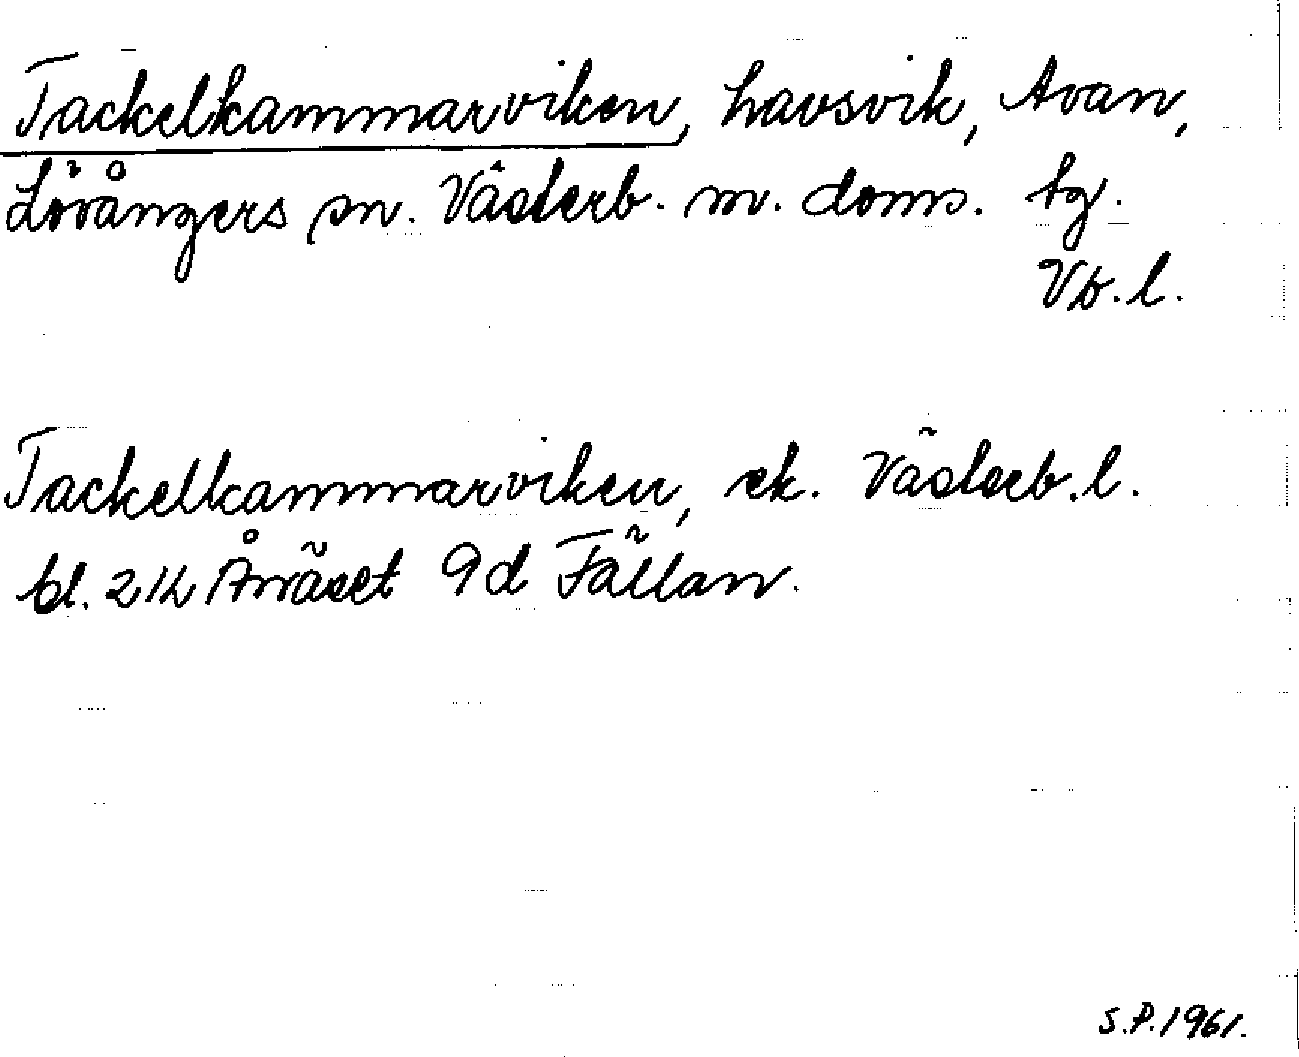 Tackelkammarviken, havsvik, Avan,
Lövångers sn. Västerb. m. doms. tg.
Vb. l.
Tackelkammarviken, ek. Västerb. l.
bl. 21K Ånäset 9d Fällan.
S.P. 1961.